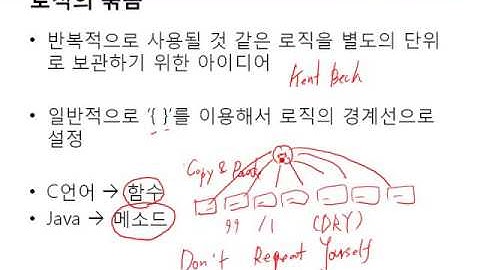 로직의 묶음
• 반복적으로 사용될 것 같은 로직을 별도의 단위
로 보관하기 위한 아이디어
Kent Beck
• 일반적으로 '{ }'를 이용해서 로직의 경계선으로
설정
Copy & Paste
• C언어 → 함수
• Java → 메소드
99 / 1 (DRY)
Don't Repeat Yourself